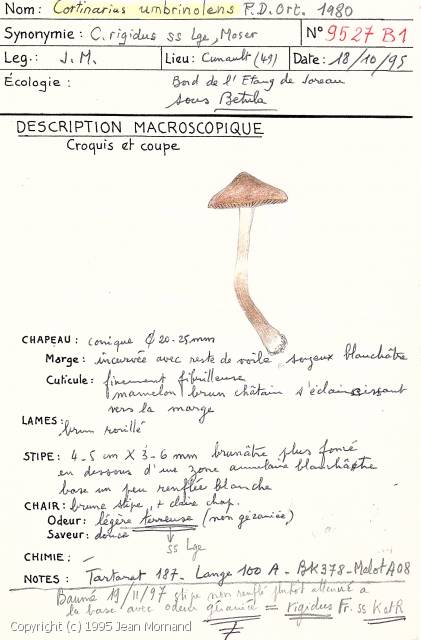 Nom: Cortinarius umbrinolens P.D. Ort. 1980
Synonymie: C. rigidus ss Lge, Moser N° 9527 B1
Leg.: J.M. Lieu: Cunault (49) Date: 18/10/95
Écologie: Bord de l'Etang de Joreau
sous Betula
DESCRIPTION MACROSCOPIQUE
Croquis et coupe
CHAPEAU: conique ϕ 20-25mm
Marge: incurvée avec reste de voile soyeux blanchâtre
Cuticule: finement fibrilleuse
mamelon brun châtain s'éclaircissant
vers la marge
LAMES: brun rouillé
STIPE: 4-5 cm X 3-6 mm brunâtre plus foncé
en dessous d'une zone annulaire blanchâtre
base un peu renflée blanche
CHAIR: brune stipe, + claire chap.
Odeur: légère terreuse (non géraniée)
Saveur: douce
ss Lge
CHIMIE: -
NOTES: Tartarat 187 - Lange 100 A - BK378 - Malot A08
19/11/97 stipe non renflé plutôt atténué à
la base avec odeur = rigidus Fr. ss K et R
Copyright (c) 1995 Jean Mornand